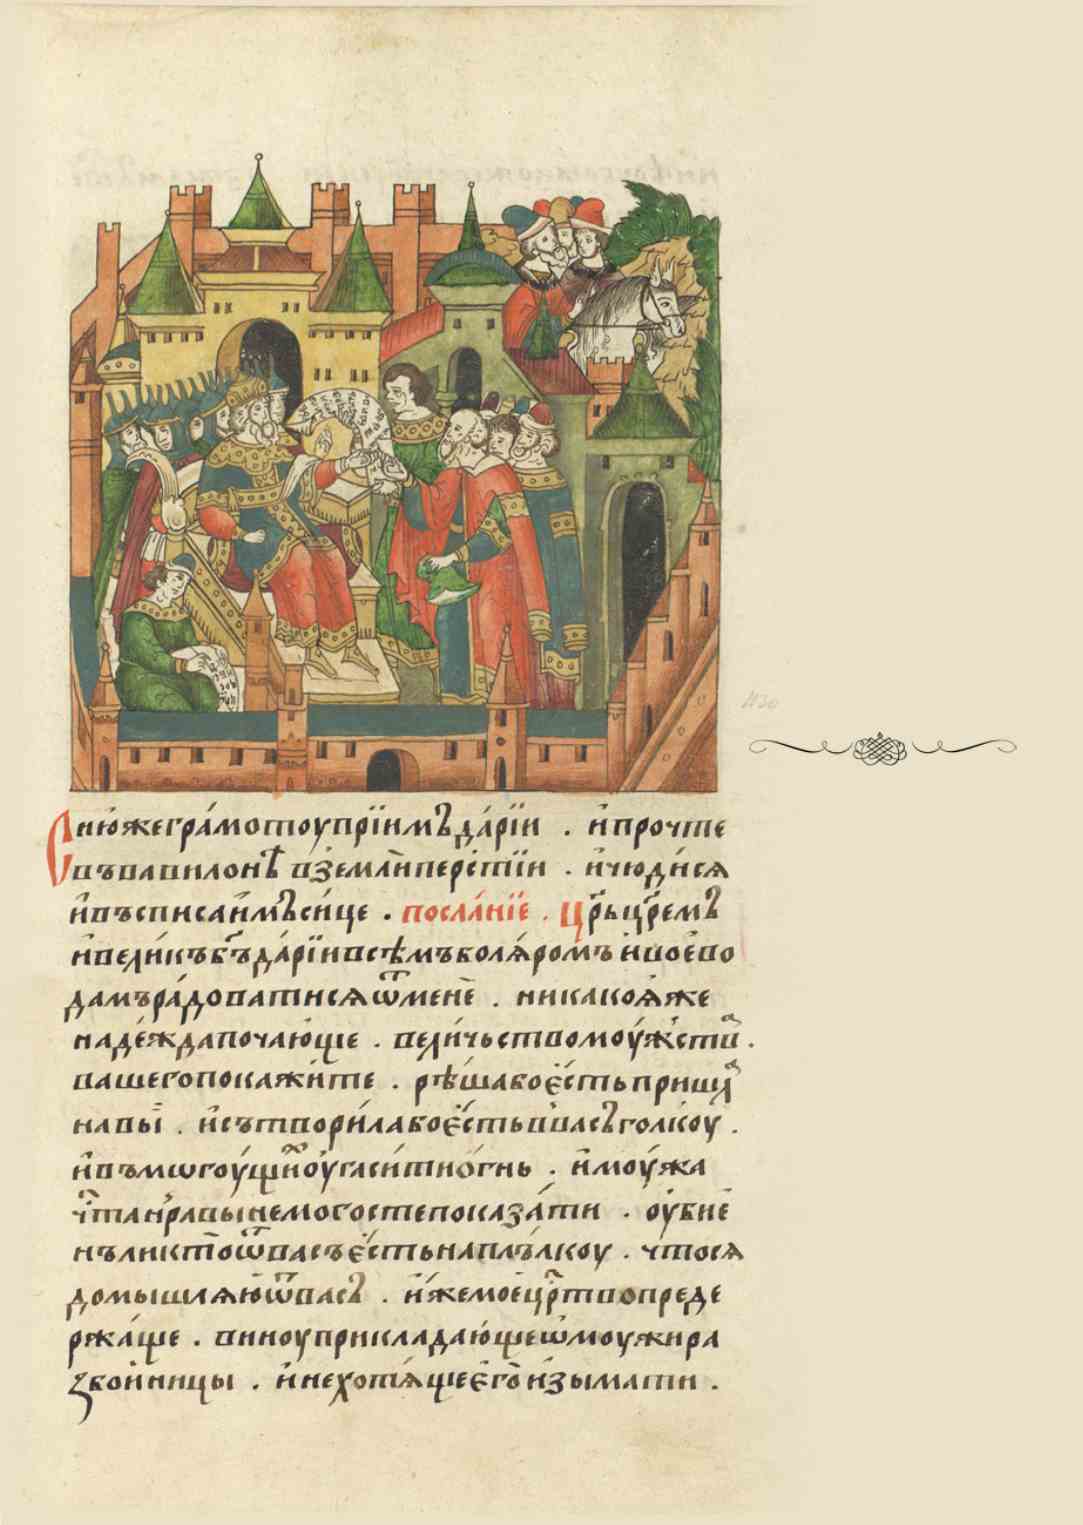 Сиюжеграмотоуприимъдарїи . ипрочте
въвавилонѣ вземлиперстїи . ичюдися
ивъсписаимъсице . посланїе . Црьцремъ
ивеликъбъдарїивсѣмъболяромъ ивоево
дамърадоватисяѿмене . никакояже
надеждапочающе . величьствомоужств .
вашегопокажите . рѣшабоестьпришл
навы . исътворилабоестьввасъголкоу .
ивъмѡгоущиоугаситиогнь . имоужа
чтанравынемогостепоказати . оубие
нъликтоѿвасъестьнаплълкоу . чтося
домышляюѿвасъ . ижемоецртвопреде
ржаще . виноуприкладающеѡмоужира
збоиницы . инехотящеегоизымати .